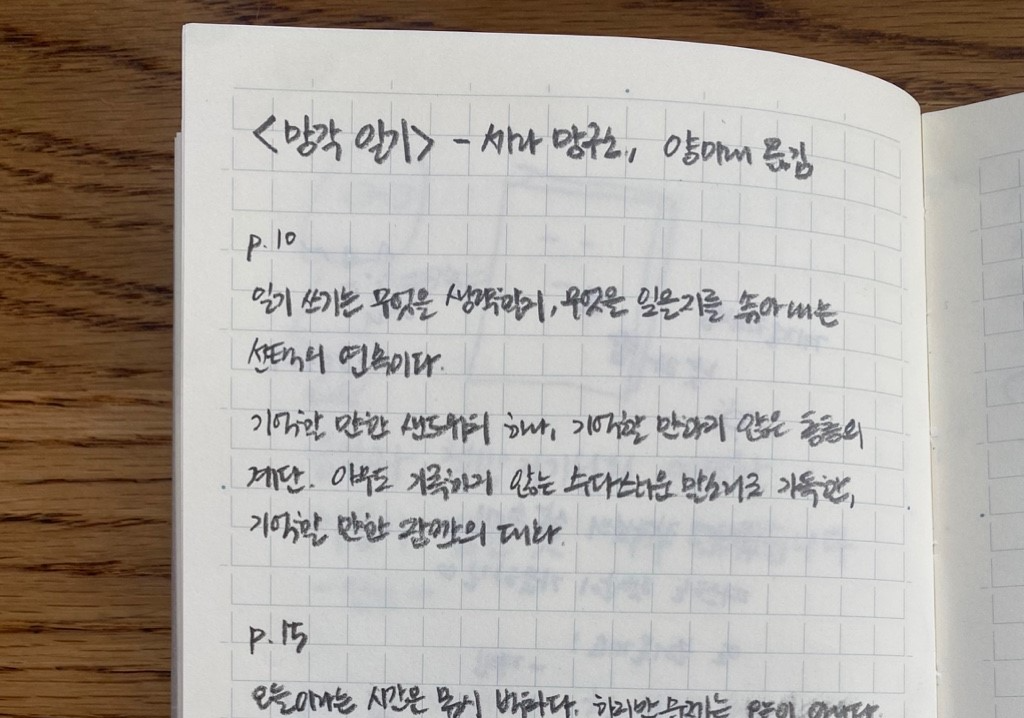 <망각 일기> - 사라 망구소, 양미래 옮김
p.10
일기 쓰기는 무엇을 생략할지, 무엇을 잊을지를 솎아내는
선택의 연속이다.
기억할 만한 샌드위치 하나, 기억할 만하지 않은 층층의
계단. 아무도 기록하지 않는 수다스러운 말소리로 가득한,
기억할 만한 잠깐의 대화.
p.15
오늘이라는 시간은 몹시 바쁘다. 하지만 문제는 오늘이 아니다.